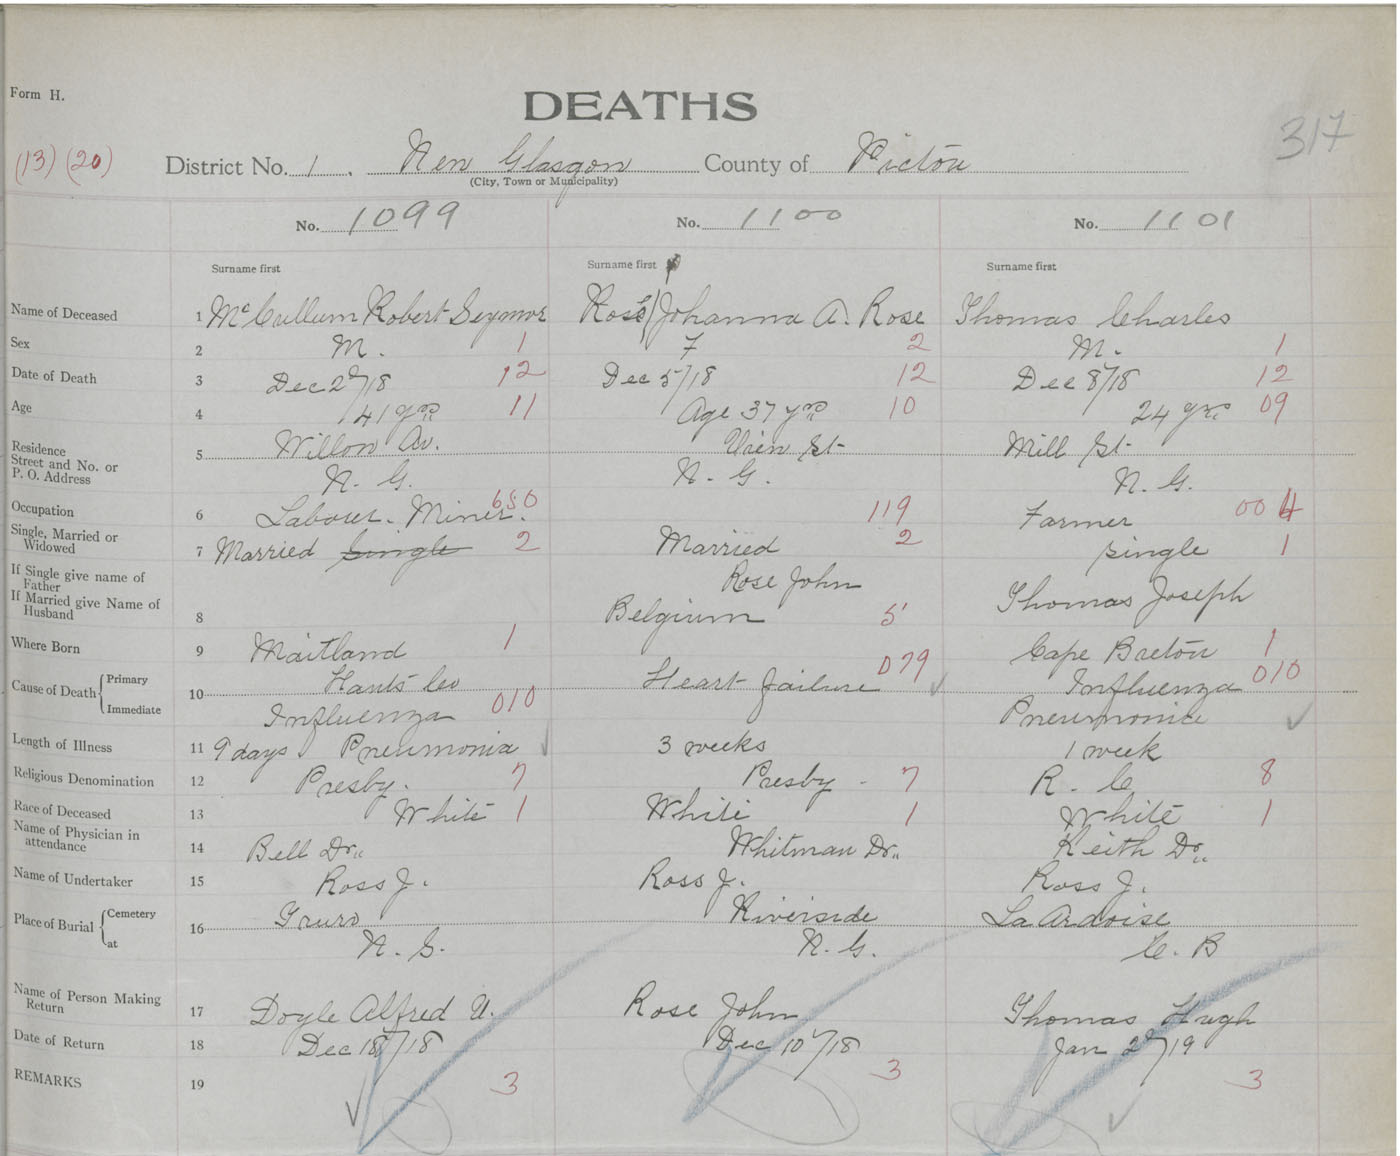 Form H.
DEATHS
317
(13) (20) District No. 1. New Glasgow County of Pictou
(City, Town or Municipality)
No. 1099 No. 1100 No. 1101
Surname first Surname first Surname first
Name of Deceased 1 McCullum Robert Seymor Ross (Johanna A. Rose Thomas Charles
Sex 2 M. 1 F 2 M. 1
Date of Death 3 Dec 2nd/18 12 Dec 5/18 12 Dec 8/18 12
Age 4 41 yrs 11 Age 37 yrs 10 24 yrs 09
Residence
Street and No. or
P. O. Address
5 Willow Av. St Mill St
N. G. N. G. N. G.
Occupation 6 Labour. Miner. 650 119 Farmer 004
Single, Married or
Widowed
7 Married Single 2 Married 2 single 1
If Single give name of
Father
If Married give Name of
Husband
8 Rose John Thomas Joseph
Belgium 5
Where Born 9 Maitland 1 Cape Breton 1
Hants Co
Cause of Death Primary
Immediate
10 Influenza 010 Heart failure 079 Influenza 010
Pneumonia
Length of Illness 11 9 days Pneumonia 3 weeks 1 week
Religious Denomination 12 Presby. 7 Presby - 7 R. C. 8
Race of Deceased 13 White 1 White 1 White 1
Name of Physician in
attendance
14 Bell Dr. Whitman Dr. Keith Dr.
Name of Undertaker 15 Ross J. Ross J. Ross J.
Place of Burial Cemetery
at
16 Truro Riverside La Ardoise
N. S. N. G. C. B
Name of Person Making
Return
17 Doyle Alfred U. Rose John Thomas Hugh
Date of Return 18 Dec 18/18 Dec 10/18 Jan 2nd/19
REMARKS 19 3 3 3